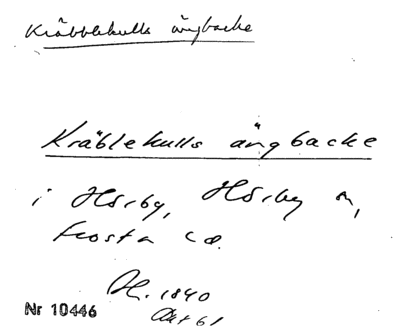 Kräbblekulls ängbacke
Kräblekulls ängbacke
i Hörby, Hörby
Frosta
H. 1840
Nr 10446